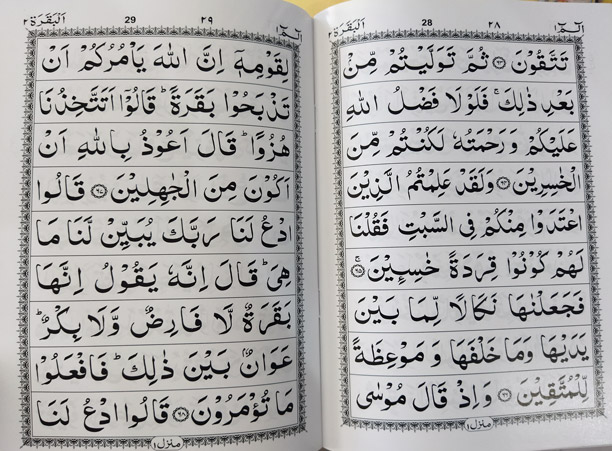 الٓمّٓ ١
٢٨
28
البقرة ٢
تَتَّقُوْنَ ۝٦٣ ثُمَّ تَوَلَّيْتُمْ مِّنْۢ
بَعْدِ ذٰلِكَ ۚ فَلَوْلَا فَضْلُ اللّٰهِ
عَلَيْكُمْ وَ رَحْمَتُهٗ لَكُنْتُمْ مِّنَ
الْخٰسِرِيْنَ ۝٦٤ وَلَقَدْ عَلِمْتُمُ الَّذِيْنَ
اعْتَدَوْا مِنْكُمْ فِى السَّبْتِ فَقُلْنَا
لَهُمْ كُوْنُوْا قِرَدَةً خٰسِـِٕيْنَ ۝٦٥ ۚ
فَجَعَلْنٰهَا نَكَالًا لِّمَا بَيْنَ
يَدَيْهَا وَمَا خَلْفَهَا وَ مَوْعِظَةً
لِّلْمُتَّقِيْنَ ۝٦٦ وَ اِذْ قَالَ مُوْسٰى
منزل ١
الٓمّٓ ١
٢٩
29
البقرة ٢
لِقَوْمِهٖۤ اِنَّ اللّٰهَ يَاْمُرُكُمْ اَنْ
تَذْبَحُوْا بَقَرَةً ؕ قَالُوْۤا اَتَتَّخِذُنَا
هُزُوًا ؕ قَالَ اَعُوْذُ بِاللّٰهِ اَنْ
اَكُوْنَ مِنَ الْجٰهِلِيْنَ ۝٦٧ قَالُوا
ادْعُ لَنَا رَبَّكَ يُبَيِّنْ لَّنَا مَا
هِىَ ؕ قَالَ اِنَّهٗ يَقُوْلُ اِنَّهَا
بَقَرَةٌ لَّا فَارِضٌ وَّلَا بِكْرٌ ؕ
عَوَانٌۢ بَيْنَ ذٰلِكَ ؕ فَافْعَلُوْا
مَا تُؤْمَرُوْنَ ۝٦٨ قَالُوا ادْعُ لَنَا
منزل ١